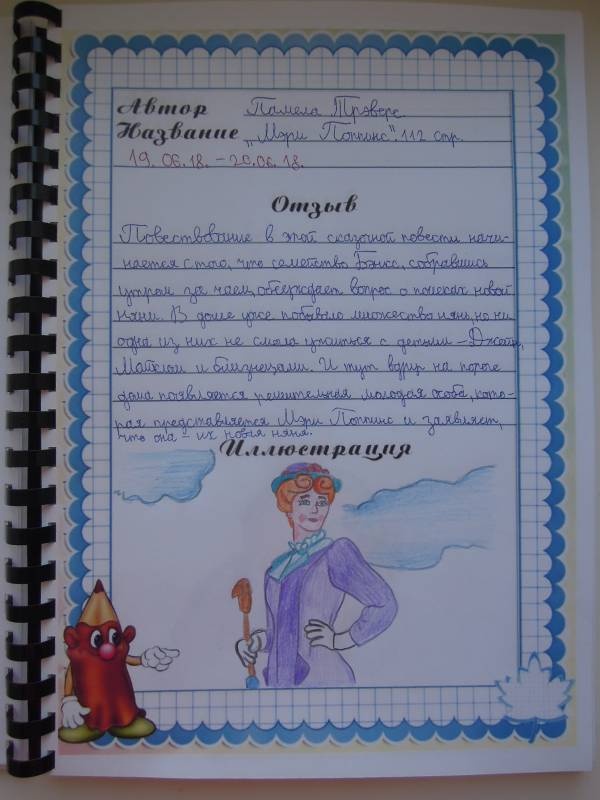 Автор Памела Трэверс.
Название „Мэри Поппинс". 112 стр.
19.06.18. – 20.06.18.
Отзыв
Повествование в этой сказочной повести начи-
нается с того, что семейство Бэнкс, собравшись
утром за чаем, обсуждает вопрос о поисках новой
няни. В доме уже побывало множество нянь, но ни
одна из них не смогла ужиться с детьми – Джейн,
Майклом и близнецами. И тут вдруг на пороге
дома появляется решительная молодая особа, кото-
рая представляется Мэри Поппинс и заявляет,
что она – их новая няня.
Иллюстрация